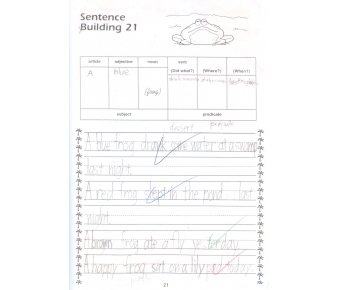 Sentence
Building 21
article adjective noun verb
(Did what?) (Where?) (When?)
A blue (frog)
subject predicate
A blue frog drank some water at a swamp
last night.
A red frog slept in the pond last
night
A brown frog ate a fly yesterday
A happy frog sat on a lily pad today
21